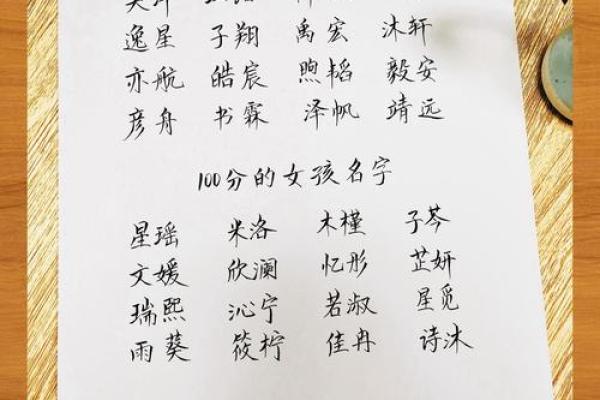 逸星 子翔 禹宏 沐轩
亦航 皓宸 煦韬 毅安
彦舟 书霖 泽帆 靖远
100分的女孩名字
星瑶 米洛 木槿 子芩
文媛 欣澜 忆彤 芷妍
瑞熙 沁宁 若淑 星觅
雨葵 筱柠 佳冉 诗沐